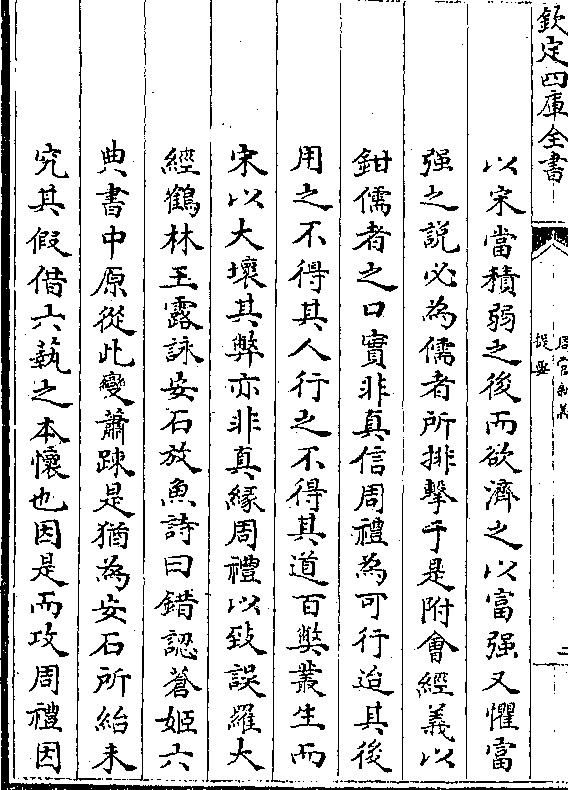 欽定四庫全書
周官新義
提要
二
以宋當積弱之後而欲濟之以富强又懼富
强之說必為儒者所排擊于是附會經義以
鉗儒者之口實非真信周禮為可行迨其後
用之不得其人行之不得其道百弊叢生而
宋以大壞其弊亦非真緣周禮以致誤羅大
經鶴林玉露詠安石放魚詩曰錯認蒼姬六
典書中原從此變蕭踈是猶為安石所紿未
究其假借六執之本懷也因是而攻周禮因